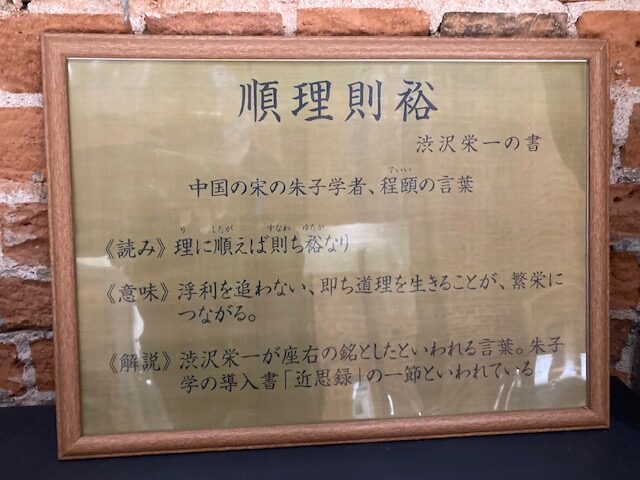 順理則裕
渋沢栄一の書
中国の宋の朱子学者、程頤の言葉
《読み》理に順えば則ち裕なり
《意味》浮利を追わない、即ち道理を生きることが、繁栄に
つながる。
《解説》渋沢栄一が座右の銘としたといわれる言葉。朱子
学の導入書「近思録」の一節といわれている